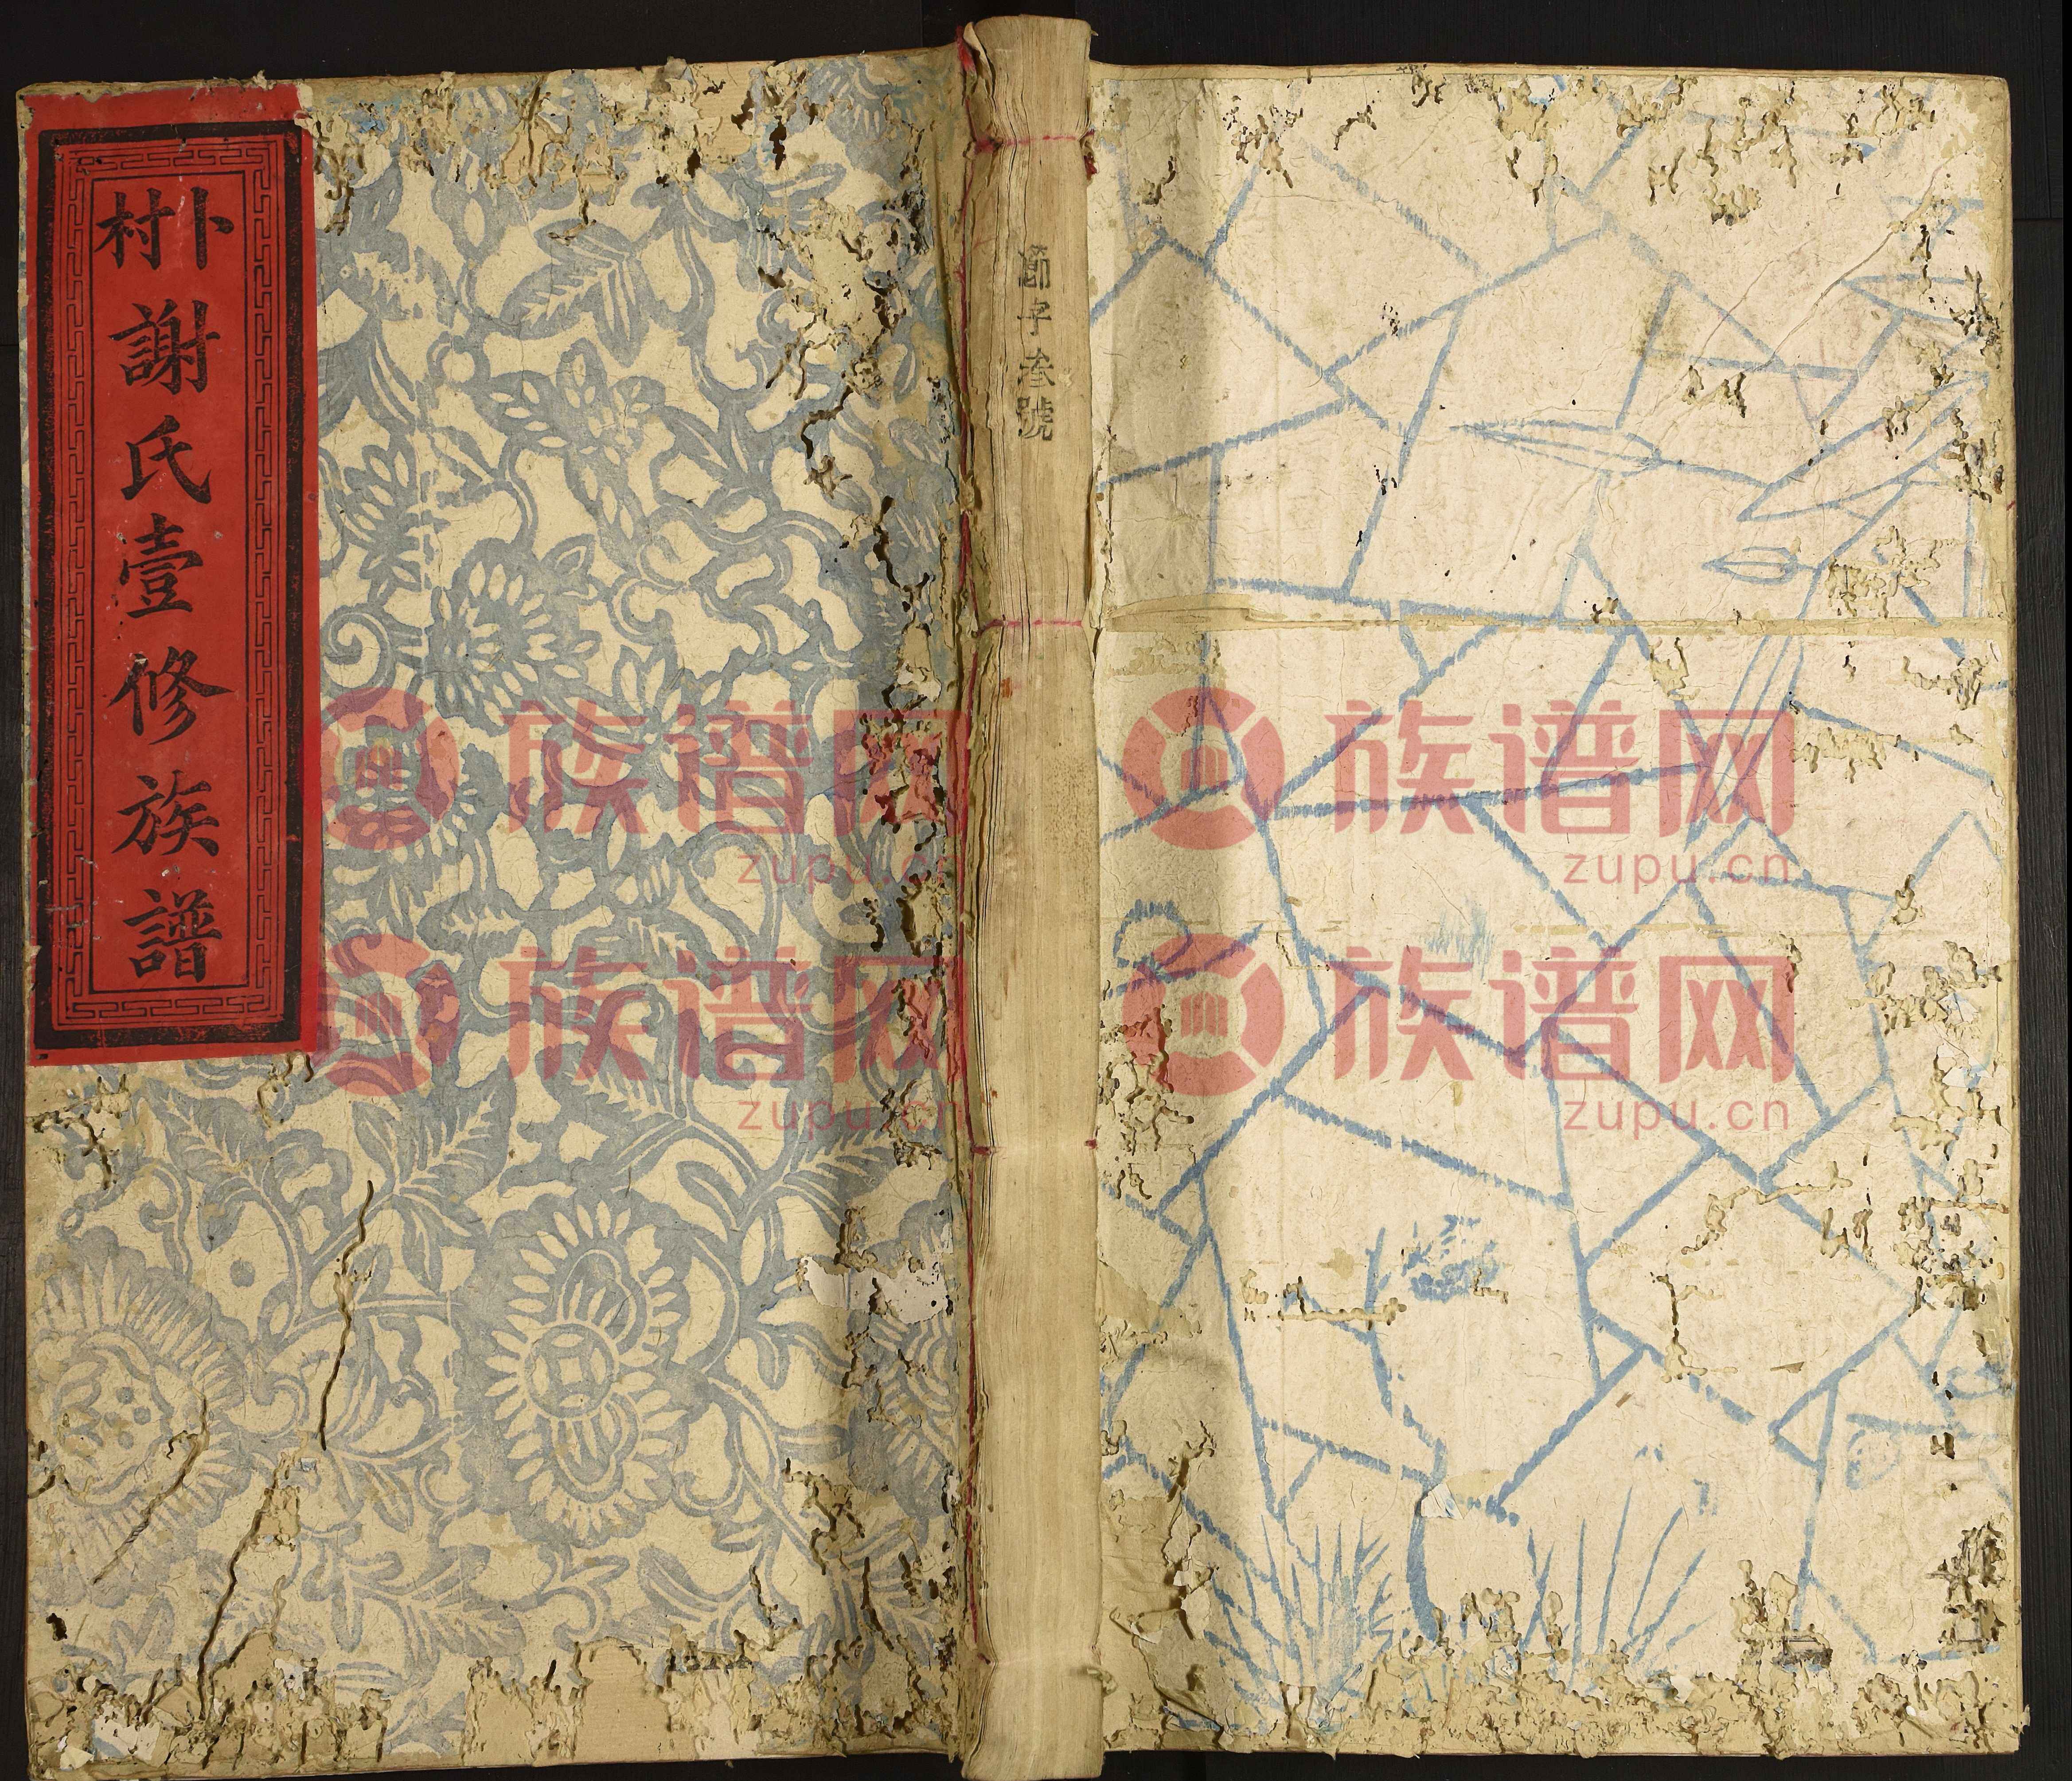 卜村謝氏壹修族譜
節字叁號
族谱网
zupu.cn
族谱网
zupu.cn
族谱网
zupu.cn
族谱网
zupu.cn